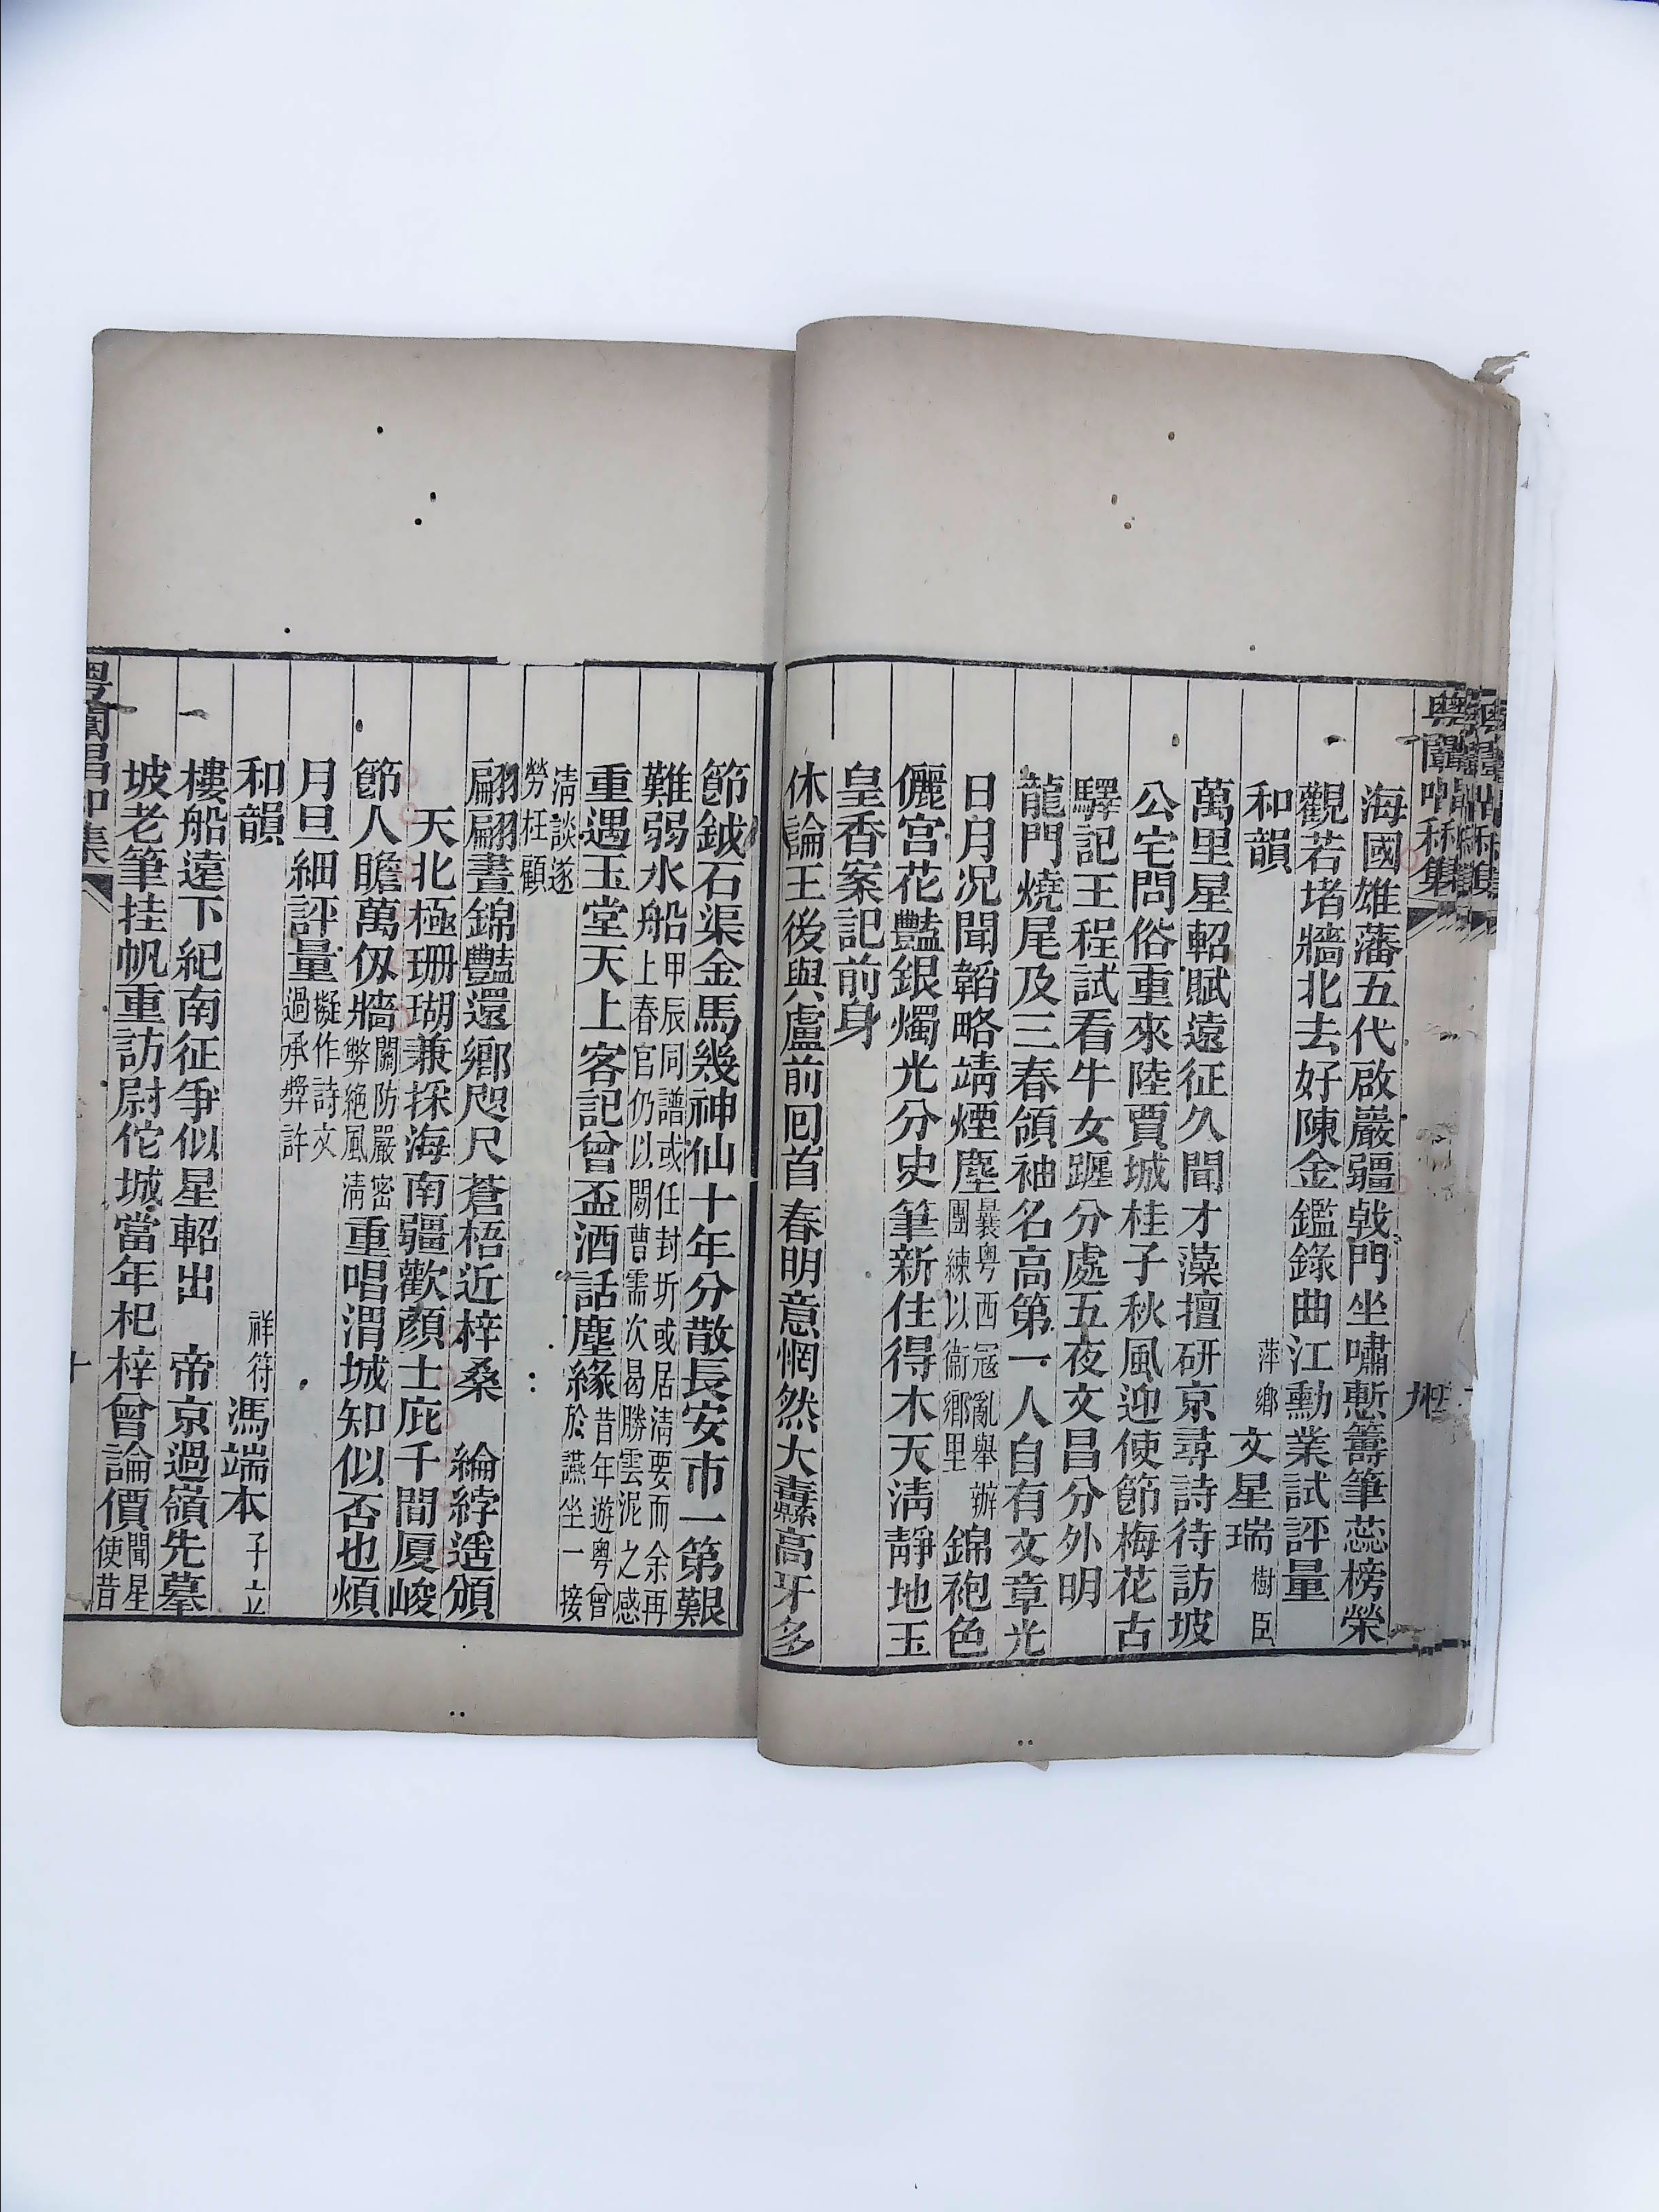 粵闈唱和集
九
海國雄藩五代啟巖疆戟門坐嘯慙籌筆蕊榜榮
觀若堵牆北去好陳金鑑錄曲江勳業試評量
和韻 萍鄉 文星瑞 樹臣
萬里星軺賦遠征久聞才藻擅研京尋詩待訪坡
公宅問俗重來陸賈城桂子秋風迎使節梅花古
驛記王程試看牛女躔分處五夜文昌分外明
龍門燒尾及三春領袖名高第一人自有文章光
日月況聞韜略靖煙塵曩粵西冦亂舉辦團練以衞鄉里錦袍色
儷宮花豔銀燭光分史筆新住得木天淸靜地玉
皇香案記前身
休論王後與盧前囘首春明意惘然大纛高牙多
節鉞石渠金馬幾神仙十年分散長安市一第艱
難弱水船甲辰同譜或任封圻或居淸要而余再上春官仍以閣曹需次曷勝雲泥之感
重遇玉堂天上客記曾盃酒話塵緣昔年遊粵曾於讌坐一接
淸談遂勞枉顧
翩翩晝錦豔還鄉咫尺蒼梧近梓桑 綸綍遙頒
天北極珊瑚兼採海南疆歡顏士庇千間厦峻
節人瞻萬仭牆關防嚴密弊絕風淸重唱渭城知似否也煩
月旦細評量擬作詩文過承獎許
和韻 祥符 馮端本 子立
樓船遠下紀南征爭似星軺出 帝京過嶺先摹
坡老筆挂帆重訪尉佗城當年杞梓曾論價聞星使昔
粵闈唱和集
十